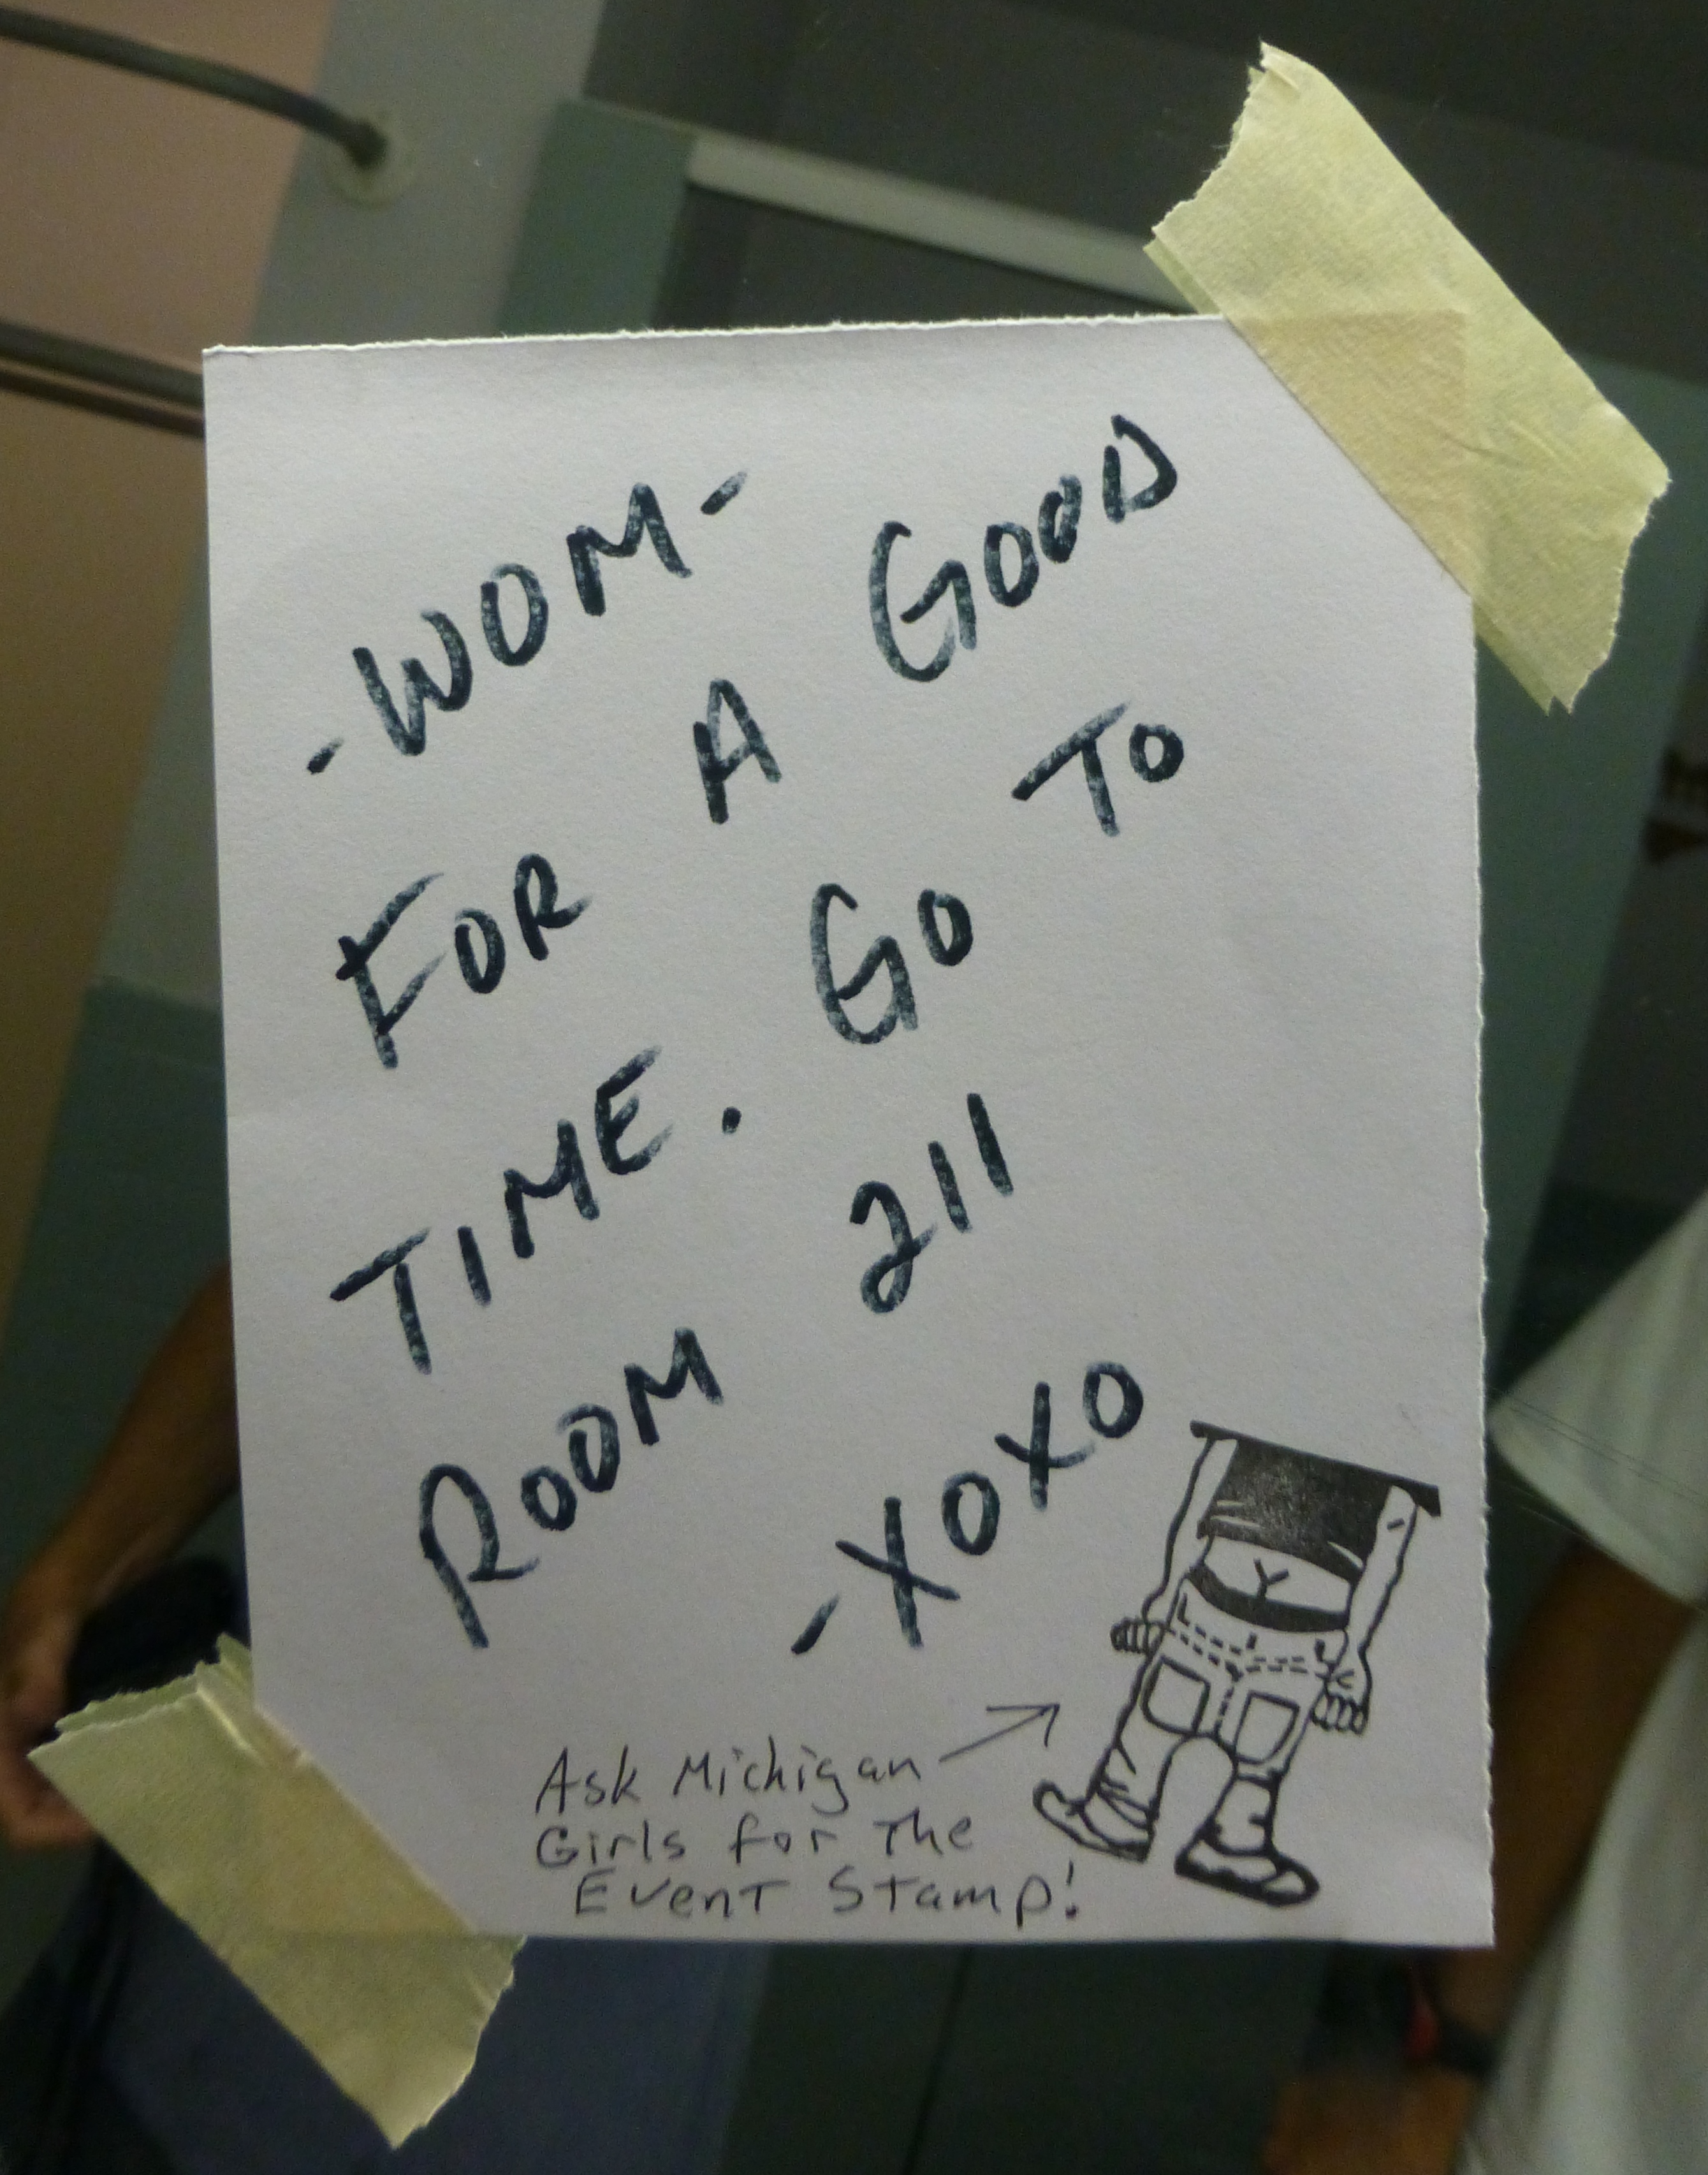 -WOM-
FOR A GOOD
TIME. GO TO
ROOM 211
-XOXO
Ask Michigan
Girls for The
Event Stamp!